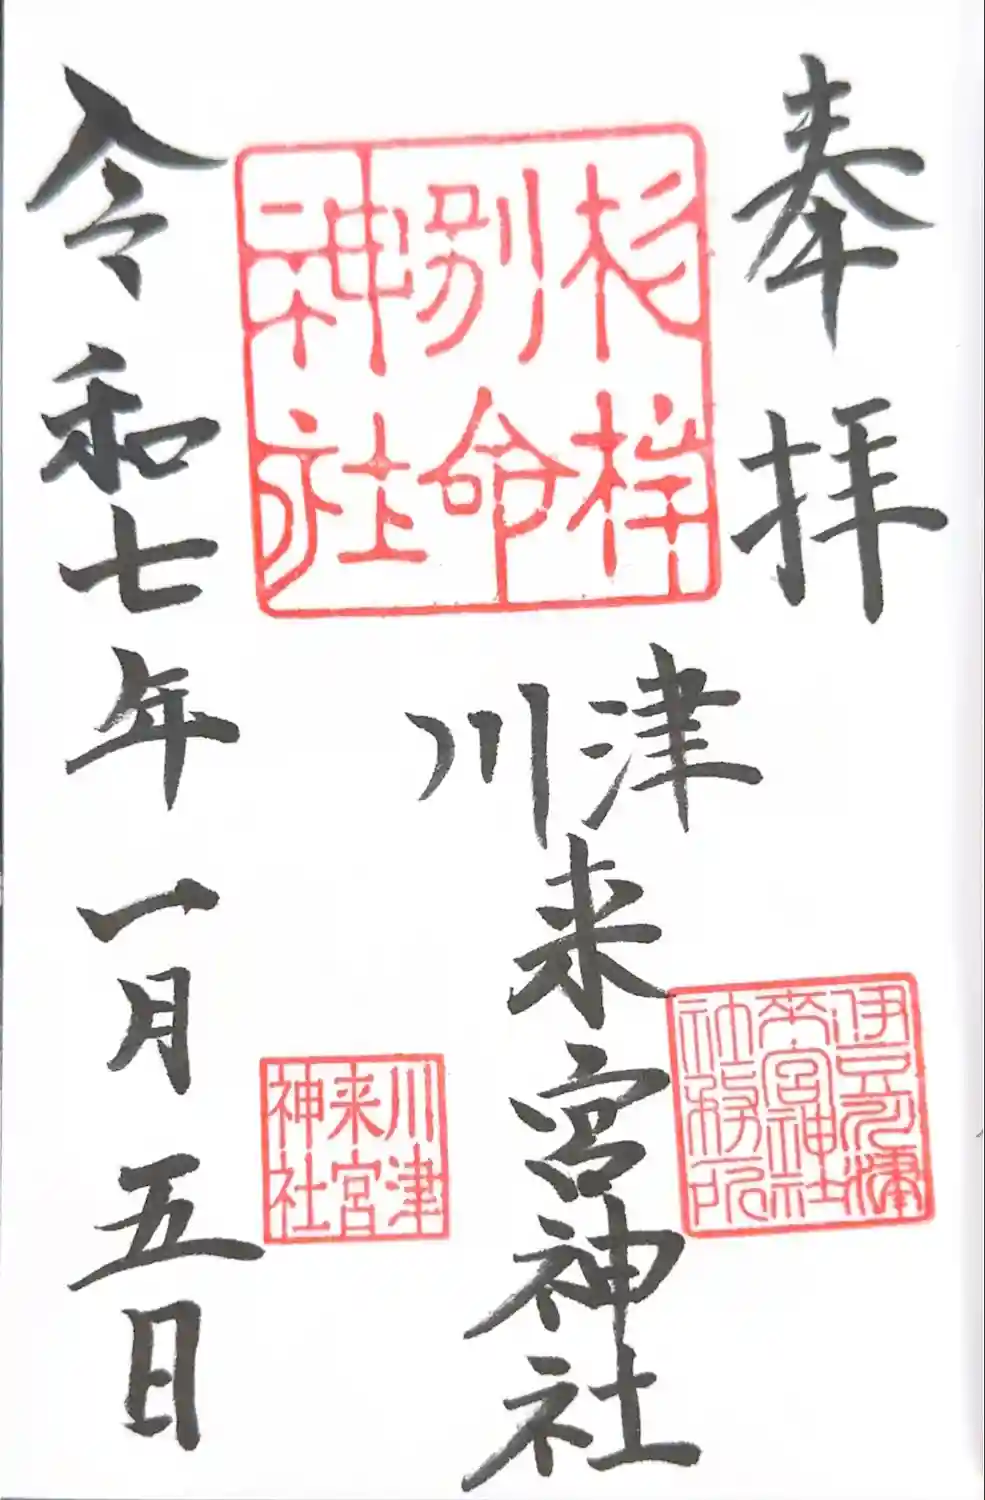 奉拝
杉桙
別命
神社
川津
来宮神社
伊豆河津
来宮神社
社務所
川津
来宮
神社
令和七年一月五日